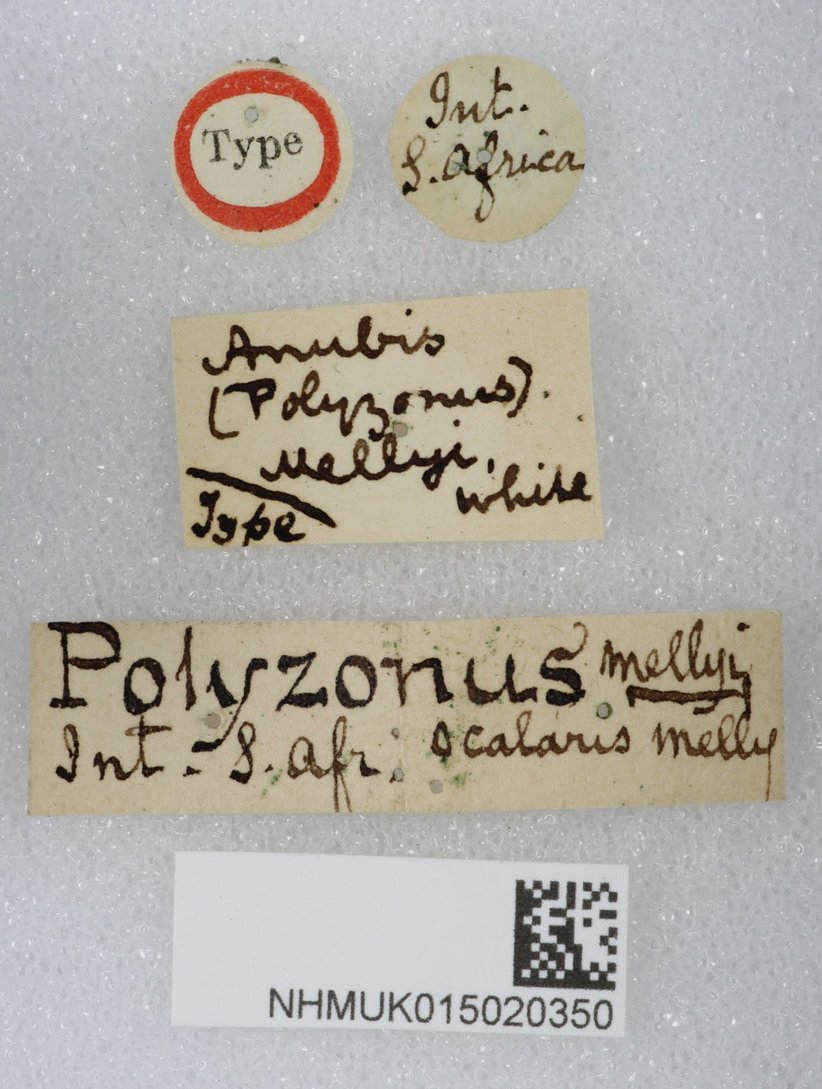 Type
Int.
S. Africa
Anubis
(Polyzonus).
Mellyi,
White
Type
Polyzonus mellyi
Int - S. Afr. scalaris Melly
NHMUK015020350